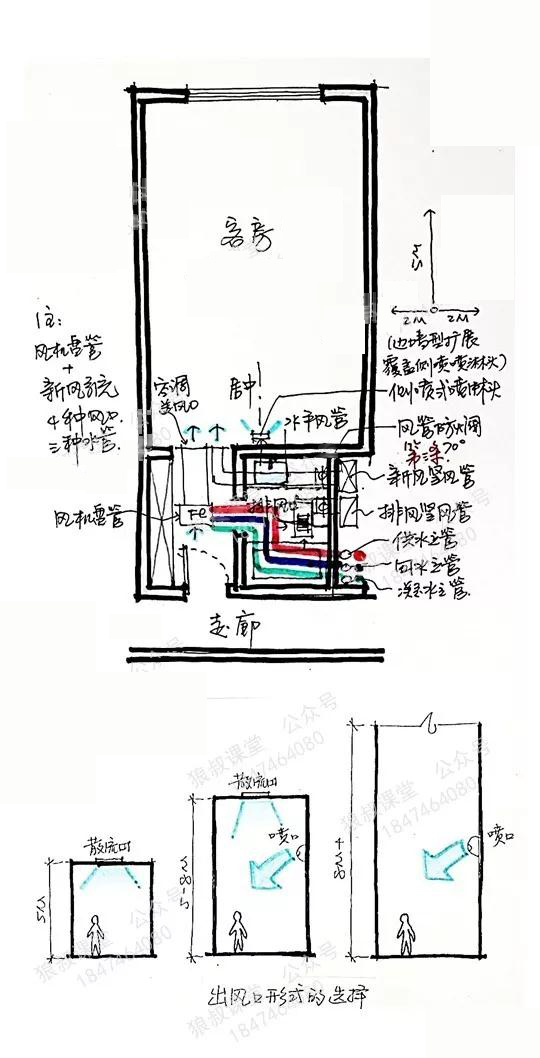 客房
注:
风机盘管
+
新风系统
4种风口
三种水管
5M
2M 2M
(边墙型扩展
覆盖侧喷喷淋头)
侧喷式喷淋头
空调
送风口
居中
水平风管
风管防火阀
70°
新风竖风管
排风竖风管
供水立管
回水立管
冷凝水立管
风机盘管
FC
排风口
走廊
散流口
5M
散流口
喷口
5-8M
喷口
狼叔课堂 公众号
1847464080
出风口形式的选择